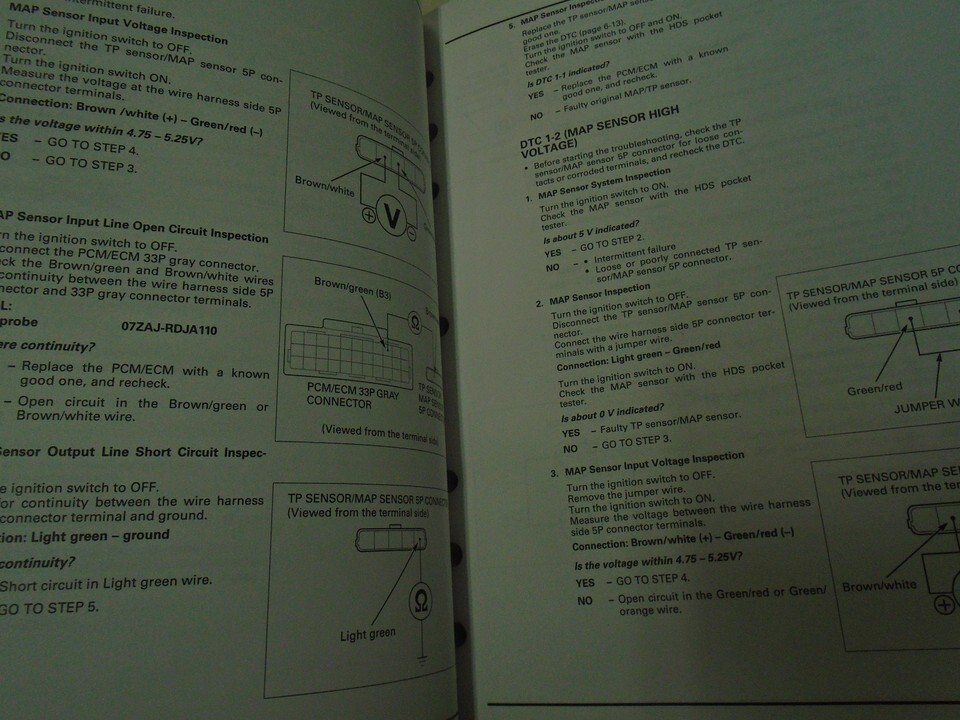 intermittent failure.
MAP Sensor Input Voltage Inspection
Turn the ignition switch to OFF.
Disconnect the TP sensor/MAP sensor 5P con-
nector.
Turn the ignition switch ON.
Measure the voltage at the wire harness side 5P
connector terminals.
Connection: Brown /white (+) – Green/red (–)
Is the voltage within 4.75 – 5.25V?
YES – GO TO STEP 4.
NO – GO TO STEP 3.
TP SENSOR/MAP SENSOR 5P
(Viewed from the terminal side)
Brown/white
+
V
–
MAP Sensor Input Line Open Circuit Inspection
Turn the ignition switch to OFF.
Disconnect the PCM/ECM 33P gray connector.
Check the Brown/green and Brown/white wires
continuity between the wire harness side 5P
connector and 33P gray connector terminals.
probe 07ZAJ-RDJA110
there continuity?
– Replace the PCM/ECM with a known
good one, and recheck.
– Open circuit in the Brown/green or
Brown/white wire.
Brown/green (B3)
Ω
PCM/ECM 33P GRAY
CONNECTOR
TP
MAP
5P
(Viewed from the terminal side)
Sensor Output Line Short Circuit Inspec-
ignition switch to OFF.
for continuity between the wire harness
connector terminal and ground.
Light green – ground
continuity?
Short circuit in Light green wire.
GO TO STEP 5.
TP SENSOR/MAP SENSOR 5P
(Viewed from the terminal side)
Ω
Light green
5. MAP Sensor
Replace the TP sensor/MAP
good one.
Erase the DTC (page 6-13).
Turn the ignition switch to OFF and ON.
Check the MAP sensor with the HDS pocket
tester.
Is DTC 1-1 indicated?
YES – Replace the PCM/ECM with a known
good one, and recheck.
NO – Faulty original MAP/TP sensor.
DTC 1-2 (MAP SENSOR HIGH
VOLTAGE)
• Before starting the troubleshooting, check the TP
sensor/MAP sensor 5P connector for loose con-
tacts or corroded terminals, and recheck the DTC.
1. MAP Sensor System Inspection
Turn the ignition switch to ON.
Check the MAP sensor with the HDS pocket
tester.
Is about 5 V indicated?
YES – GO TO STEP 2.
NO – • Intermittent failure
• Loose or poorly connected TP sen-
sor/MAP sensor 5P connector.
2. MAP Sensor Inspection
Turn the ignition switch to OFF.
Disconnect the TP sensor/MAP sensor 5P con-
nector.
Connect the wire harness side 5P connector ter-
minals with a jumper wire.
Connection: Light green – Green/red
Turn the ignition switch to ON.
Check the MAP sensor with the HDS pocket
tester.
Is about 0 V indicated?
YES – Faulty TP sensor/MAP sensor.
NO – GO TO STEP 3.
TP SENSOR/MAP SENSOR 5P
(Viewed from the terminal side)
Green/red
JUMPER
3. MAP Sensor Input Voltage Inspection
Turn the ignition switch to OFF.
Remove the jumper wire.
Turn the ignition switch to ON.
Measure the voltage between the wire harness
side 5P connector terminals.
Connection: Brown/white (+) – Green/red (–)
Is the voltage within 4.75 – 5.25V?
YES – GO TO STEP 4.
NO – Open circuit in the Green/red or Green/
orange wire.
TP SENSOR/MAP
(Viewed from the
Brown/white
+